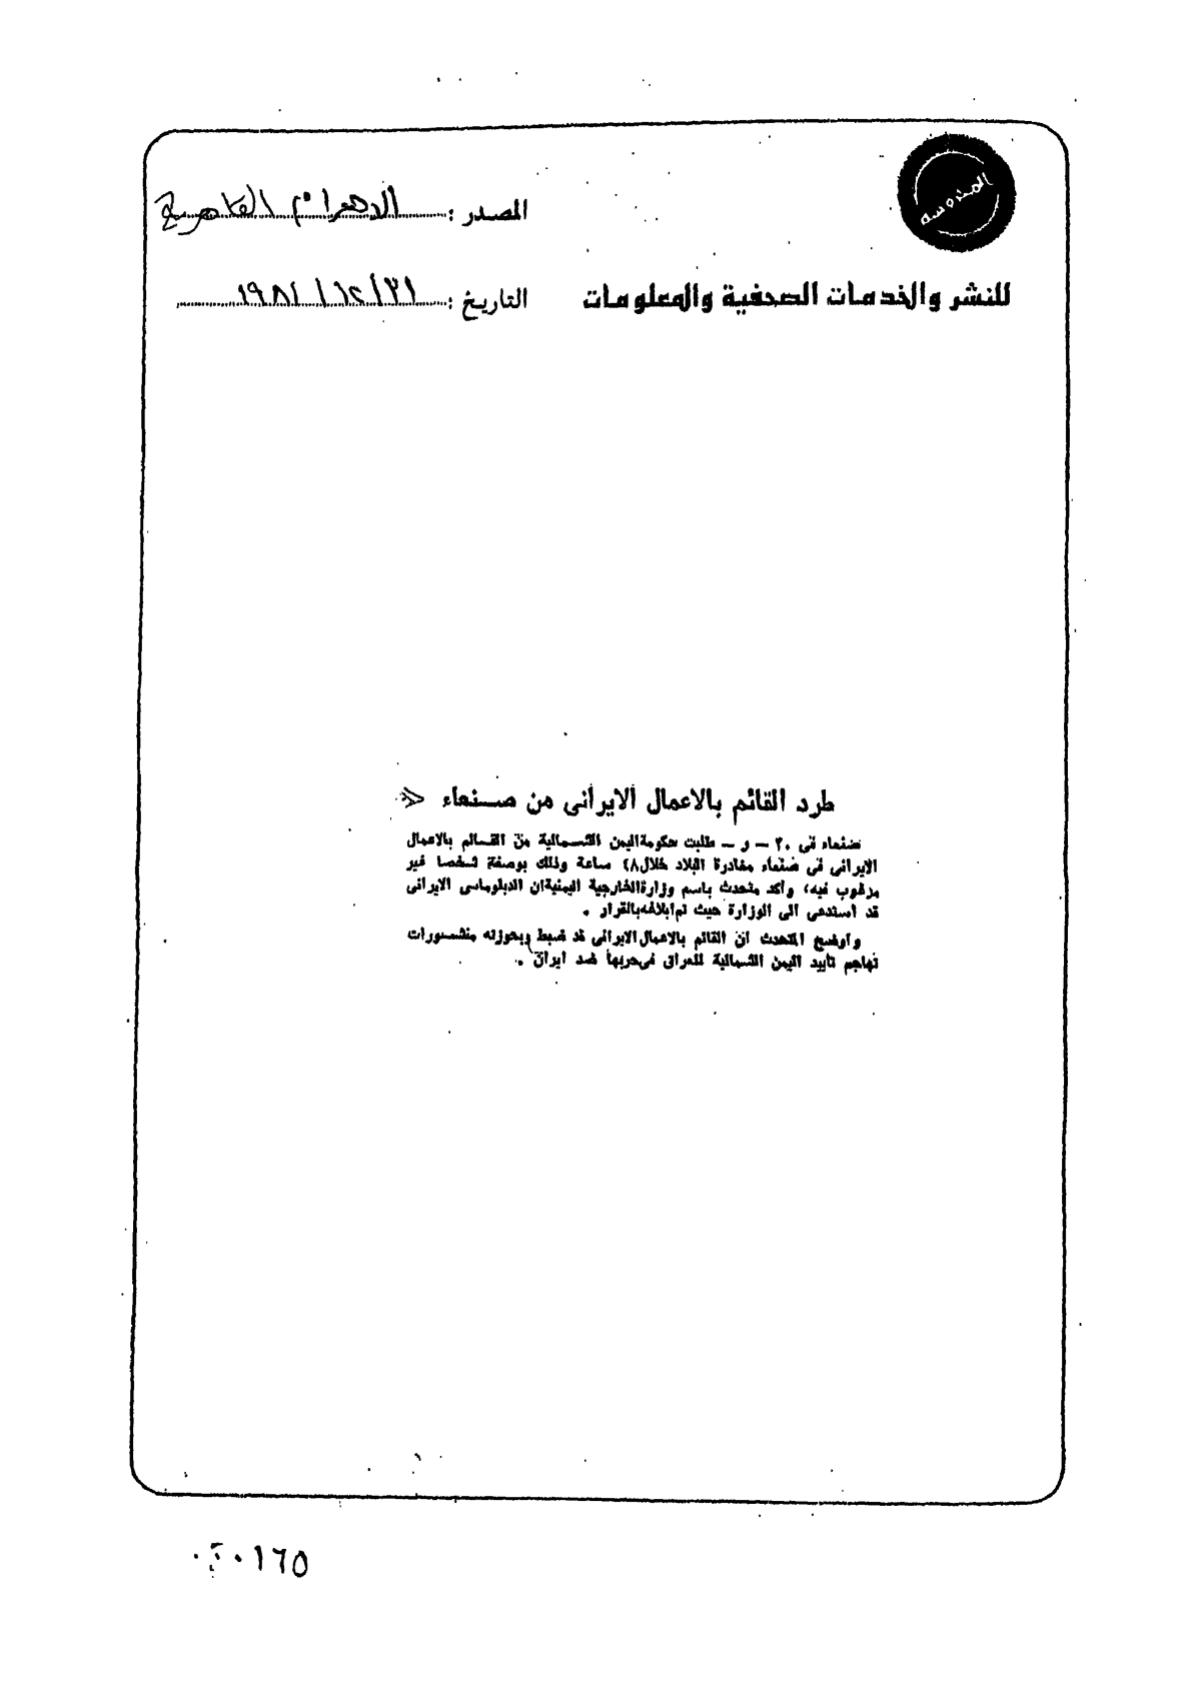 المحروسه
المصدر : الاهرام القاهرية
للنشر والخدمات الصحفية والمعلومات
التاريخ : ٣١ / ١٢ / ١٩٨١
طرد القائم بالاعمال الايرانى من صنعاء
صنعاء فى ٣٠ – و – طلبت حكومة اليمن الشمالية من القائم بالاعمال
الايرانى فى صنعاء مغادرة البلاد خلال ٤٨ ساعة وذلك بوصفه شخصا غير
مرغوب فيه، وأكد متحدث باسم وزارة الخارجية اليمنية ان الدبلوماسى الايرانى
قد استدعى الى الوزارة حيث تم ابلاغه بالقرار .
وأوضح المتحدث ان القائم بالاعمال الايرانى قد ضبط وبحوزته منشورات
تهاجم تأييد اليمن الشمالية للعراق فى حربها ضد ايران .